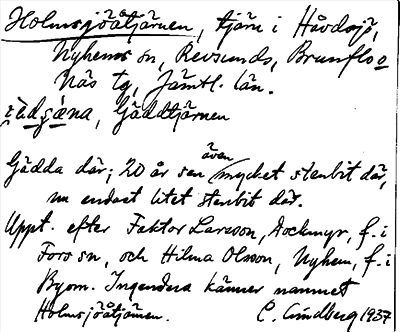 Holmsjöåtjärnen, tjärn i Håvdsjö,
Nyhems sn, Revsunds, Brunflo o
Näs tg, Jämtl. län.
Gäddtjärnen
Gädda där; 20 år sen även mycket stenbit där,
nu endast litet stenbit där.
Uppt. efter Faktor Larsson, Dockmyr, f. i
Fors sn, och Hilma Olsson, Nyhem, f. i
Byom. Ingendera känner namnet
Holmsjöåtjärnen. C. Lindberg 1937